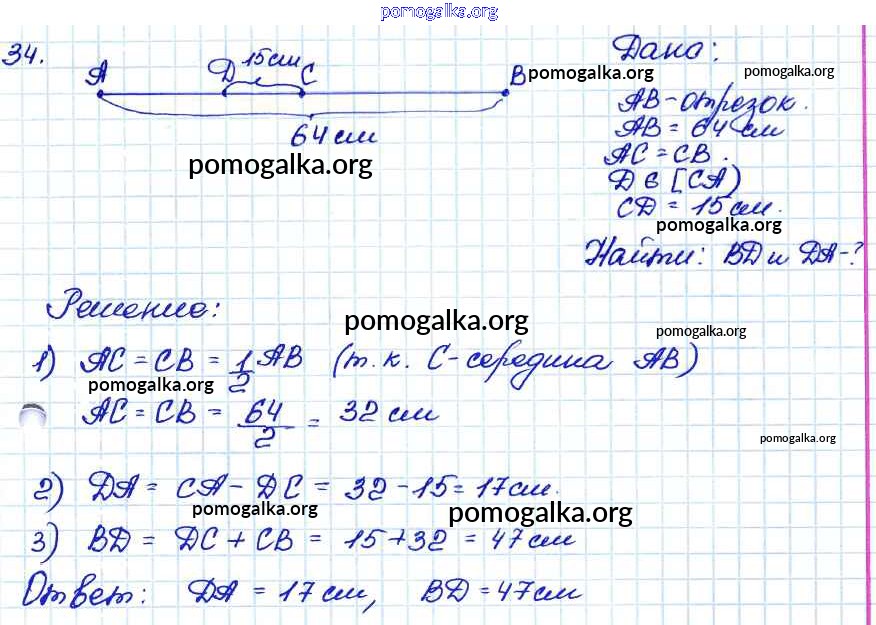 pomogalka.org
34.
A D 15см C B
64 см
pomogalka.org
Дано:
pomogalka.org pomogalka.org
AB - отрезок.
AB = 64 см
AC = CB.
D ∈ [CA)
CD = 15 см.
pomogalka.org
Найти: BD и DA - ?
Решение:
pomogalka.org
pomogalka.org
1) AC = CB = 1/2 AB (т.к. C - середина AB)
pomogalka.org
AC = CB = 64/2 = 32 см
pomogalka.org
2) DA = CA - DC = 32 - 15 = 17 см.
pomogalka.org pomogalka.org
3) BD = DC + CB = 15 + 32 = 47 см
Ответ: DA = 17 см, BD = 47 см